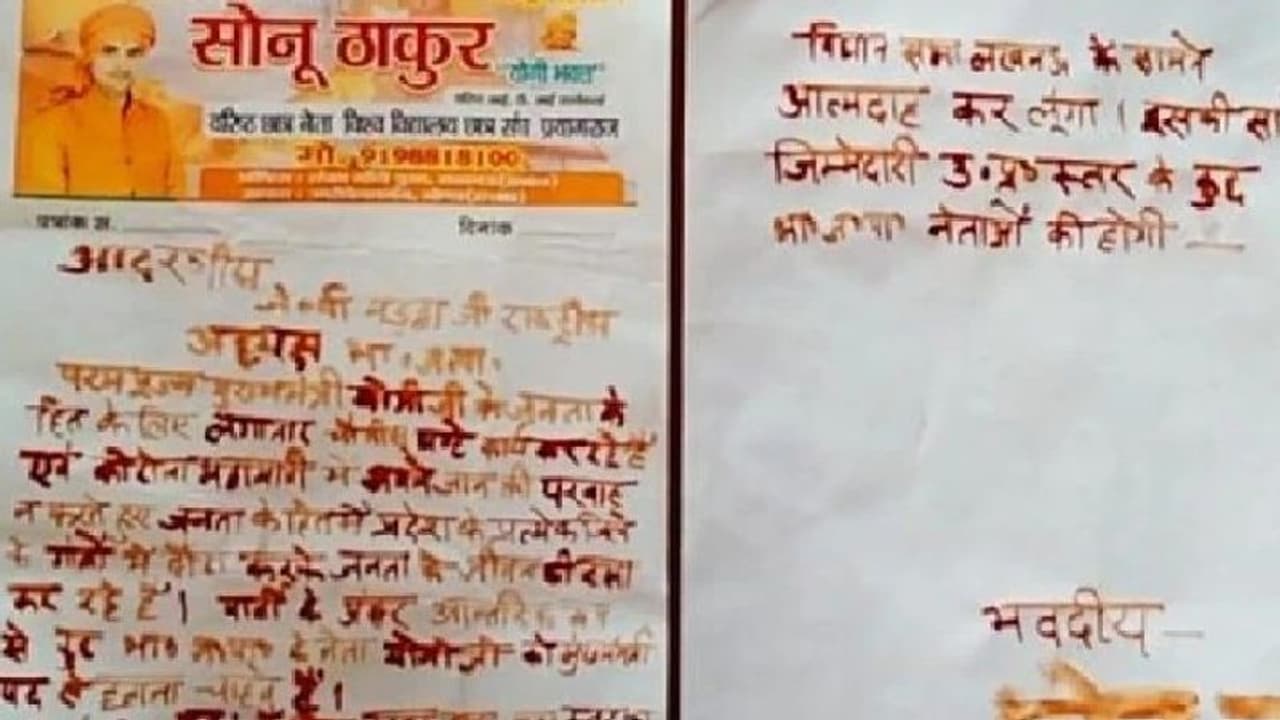 सोनू ठाकुर
"योगी भक्त"
वरिष्ठ छात्र नेता विश्व विद्यालय छात्र संघ प्रयागराज
मो. 9198818100
पत्रांक सं.
दिनांक
आदरणीय
जे०पी नड्डा जी राष्ट्रीय
अध्यक्ष भा.ज.पा.
परम पूज्य मुख्यमंत्री योगी जी के जनता के
हित के लिए लगातार चौबीस घण्टे कार्य कर रहे हैं
एवं कोरोना महामारी में अपने जान की परवाह
न करते हुए जनता के हित में प्रदेश के प्रत्येक जिले
के गांवों में दौरा करके जनता के जीवन की रक्षा
कर रहे हैं। पार्टी के अन्दर आन्तरिक
से कुछ भा० ज०पा० के नेता योगी जी को मुख्यमंत्री
पद से हटाना चाहते हैं।
विधान सभा लखनऊ के सामने
आत्मदाह कर लूंगा। इसकी सा
जिम्मेदारी उ.प्र० स्तर के कुछ
भाजपा नेताओं की होगी —
भवदीय —